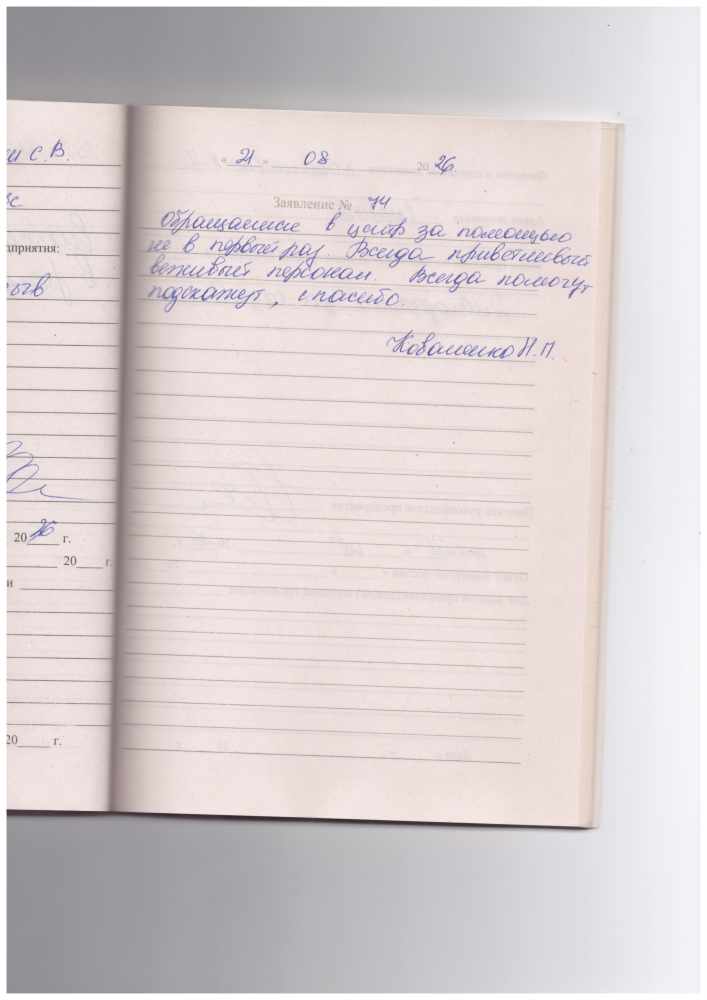 и С.В.
дприятия:
20 26 г.
20 г.
и
20 г.
« 21 » 08 20 26.
Заявление № 74
Обращаемся в центр за помощью
не в первый раз. Всегда приветливый
вежливый персонал. Всегда помогут
подскажут, спасибо.
Коваленко Н.П.